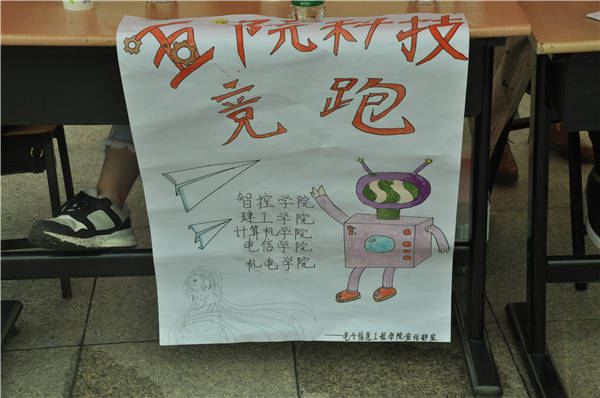 五院科技
竞跑
智控学院
建工学院
计算机学院
电信学院
机电学院
——电子信息工程学院宣传部宣